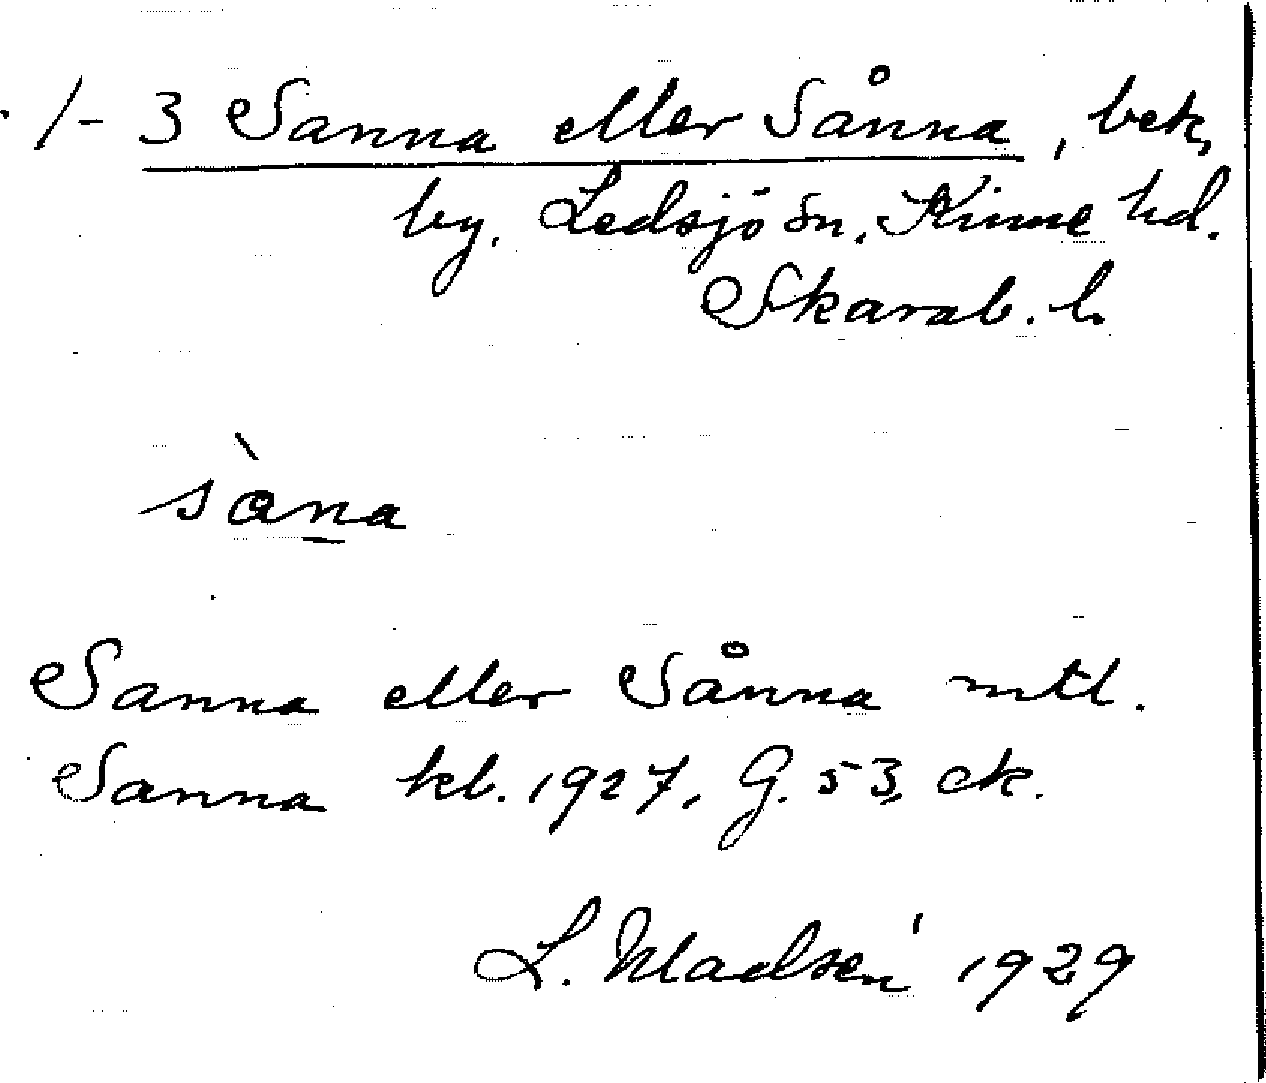 1-3 Sanna eller Sånna, bek,
by. Ledsjö sn. Kinne hd.
Skarab. l.
sàna
Sanna eller Sånna mtl.
Sanna kb. 1927, G. 53, ek.
L. 1929